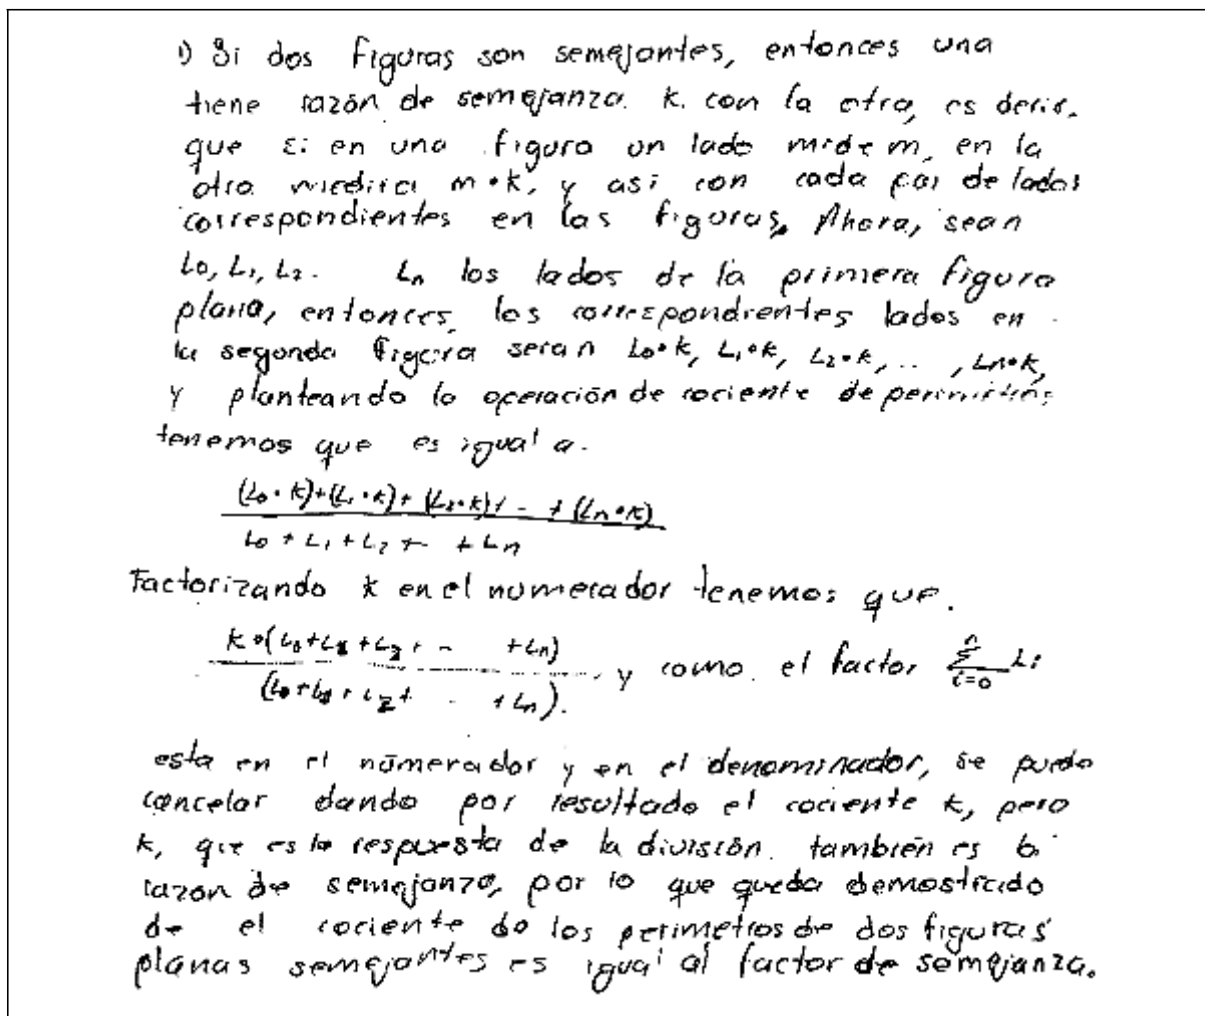 1) Si dos figuras son semejantes, entonces una
tiene razón de semejanza k con la otra, es decir,
que si en una figura un lado mide m, en la
otra medira m•k, y asi con cada par de lados
correspondientes en las figuras. Ahora, sean
L0, L1, L2. Ln los lados de la primera figura
plana, entonces, los correspondientes lados en
la segunda figura seran L0•k, L1•k, L2•k, .. , Ln•k,
y planteando la operación de cociente de perimetros
tenemos que es igual a.
(L0•k)+(L1•k)+(L2•k)+ - +(Ln•k)
L0 + L1 + L2 + + Ln
Factorizando k en el numerador tenemos que.
k•(L0+L1+L2+ - +Ln)
(L0+L1+L2+ . +Ln). y como el factor n∑i=0 Li
esta en el númerador y en el denominador, se puede
cancelar dando por resultado el cociente k, pero
k, que es la respuesta de la división también es la
razon de semejanza, por lo que queda demostrado
de el cociente de los perimetros de dos figuras
planas semejantes es igual al factor de semejanza.